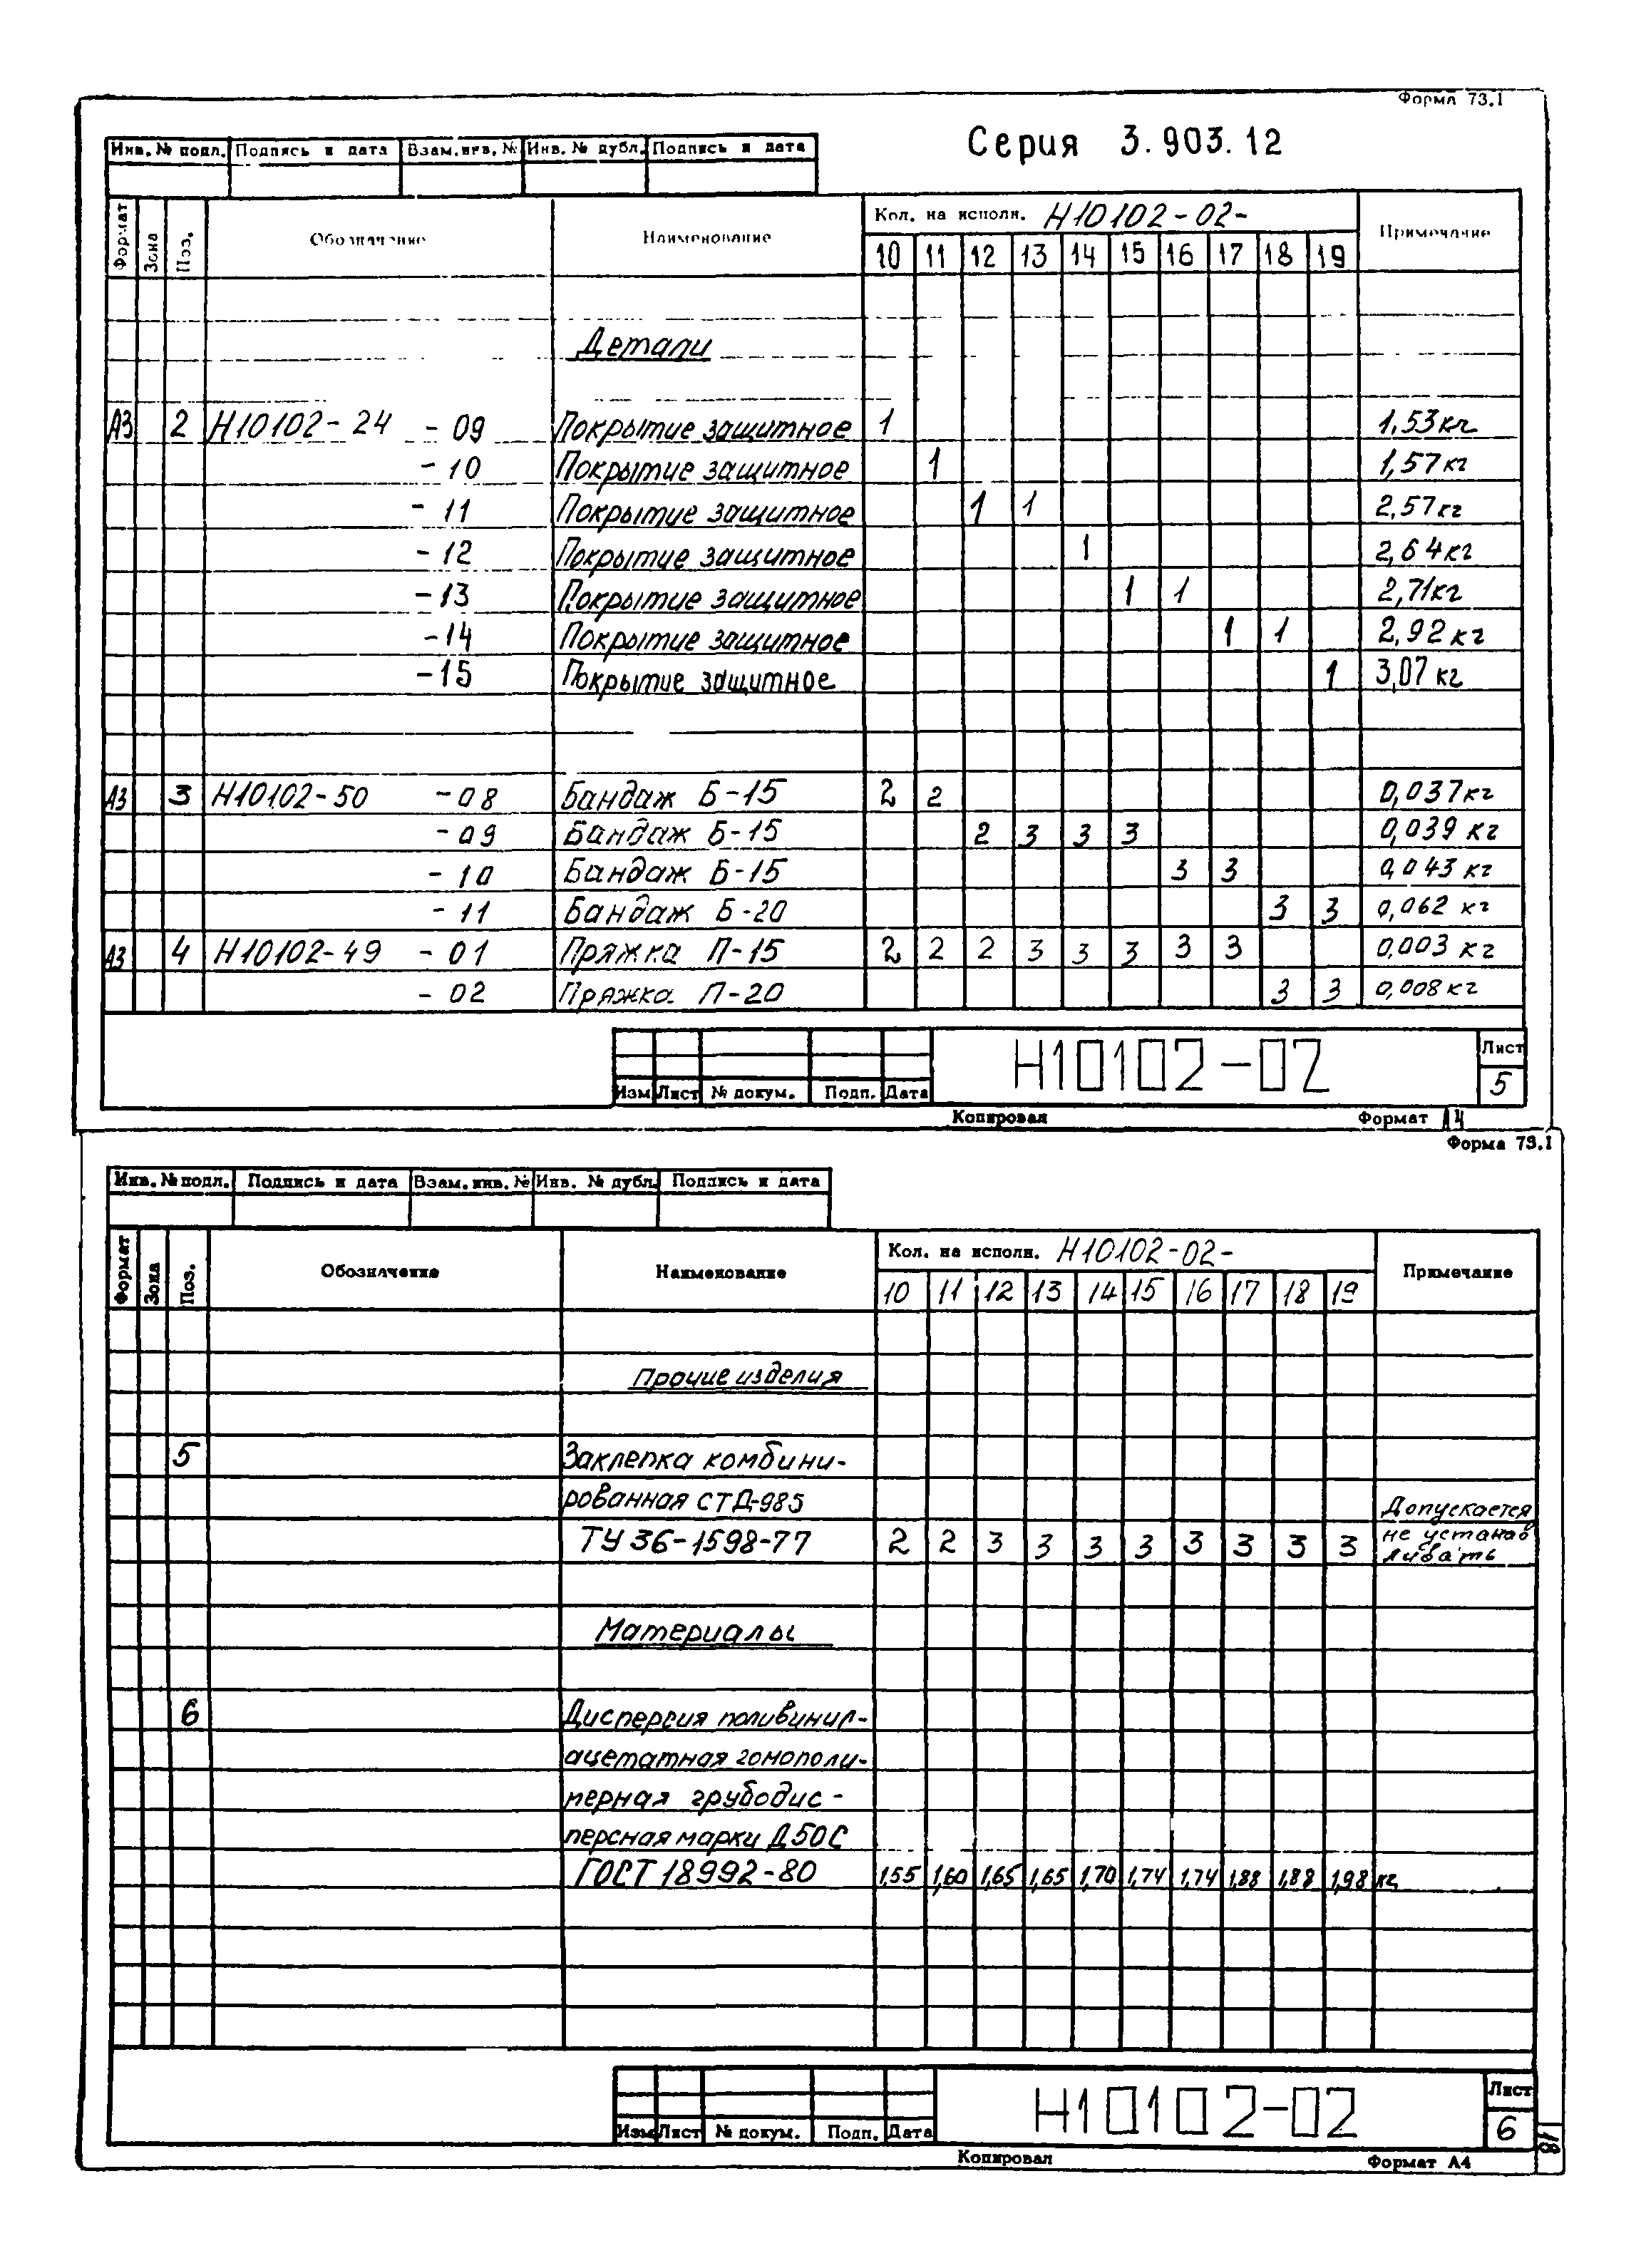 Форма 73.1
Серия 3.903.12
Инв. № подл. Подпись и дата Взам. инв. № Инв. № дубл. Подпись и дата
Формат Зона Поз. Обозначение Наименование Кол. на исполн. Н10102-02- Примечание
10 11 12 13 14 15 16 17 18 19
Детали
А3 2 Н10102-24 -09 Покрытие защитное 1 1,53 кг
-10 Покрытие защитное 1 1,57 кг
-11 Покрытие защитное 1 1 2,57 кг
-12 Покрытие защитное 1 2,64 кг
-13 Покрытие защитное 1 1 2,71 кг
-14 Покрытие защитное 1 1 2,92 кг
-15 Покрытие защитное 1 3,07 кг
А3 3 Н10102-50 -08 Бандаж Б-15 2 2 0,037 кг
-09 Бандаж Б-15 2 3 3 3 0,039 кг
-10 Бандаж Б-15 3 3 0,043 кг
-11 Бандаж Б-20 3 3 0,062 кг
А3 4 Н10102-49 -01 Пряжка П-15 2 2 2 3 3 3 3 3 0,003 кг
-02 Пряжка П-20 3 3 0,008 кг
Н10102-02 Лист
Изм Лист № докум. Подп. Дата 5
Копировал Формат А4
Форма 73.1
Инв. № подл. Подпись и дата Взам. инв. № Инв. № дубл. Подпись и дата
Формат Зона Поз. Обозначение Наименование Кол. на исполн. Н10102-02- Примечание
10 11 12 13 14 15 16 17 18 19
Прочие изделия
5 Заклепка комбини-
рованная СТД-985 Допускается
ТУ 36-1598-77 2 2 3 3 3 3 3 3 3 3 не устанав
ливать
Материалы
6 Дисперсия поливинил-
ацетатная гомополи-
мерная грубодис-
персная марки Д50С
ГОСТ 18992-80 1,55 1,60 1,65 1,65 1,70 1,74 1,74 1,88 1,88 1,98 кг
Н10102-02 Лист
Изм Лист № докум. Подп. Дата 6
118
Копировал Формат А4